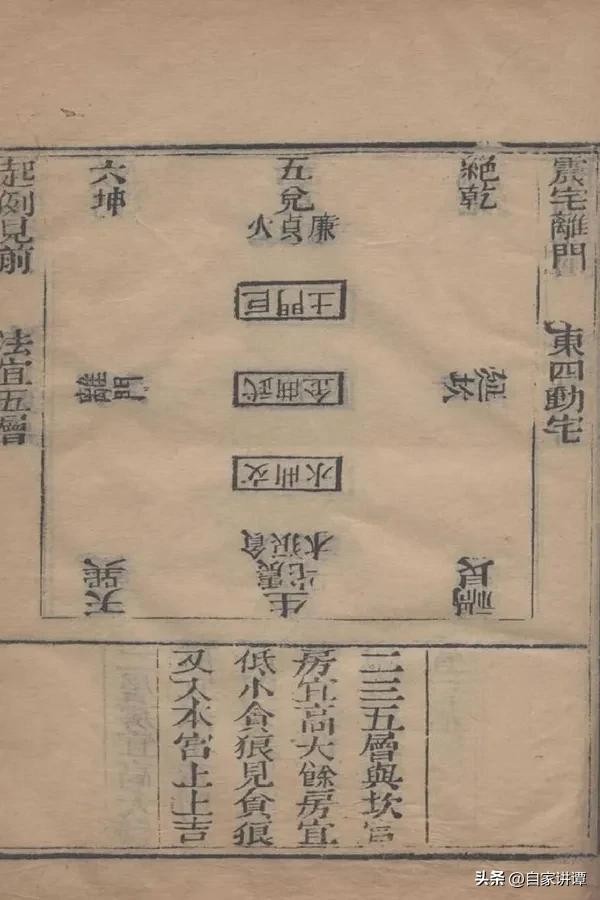 震宅離門 東四動宅
絕乾
五兌
廉貞火
六坤
巨門土
延坎
武曲金
離門
文曲水
禍艮
貪狼木
震宅
生
天巽
起例見前 法宜五層
二三五層與坎宮
房宜高大餘房宜
低小貪狼見貪狼
又入本宮上上吉
头条 @自家讲谭